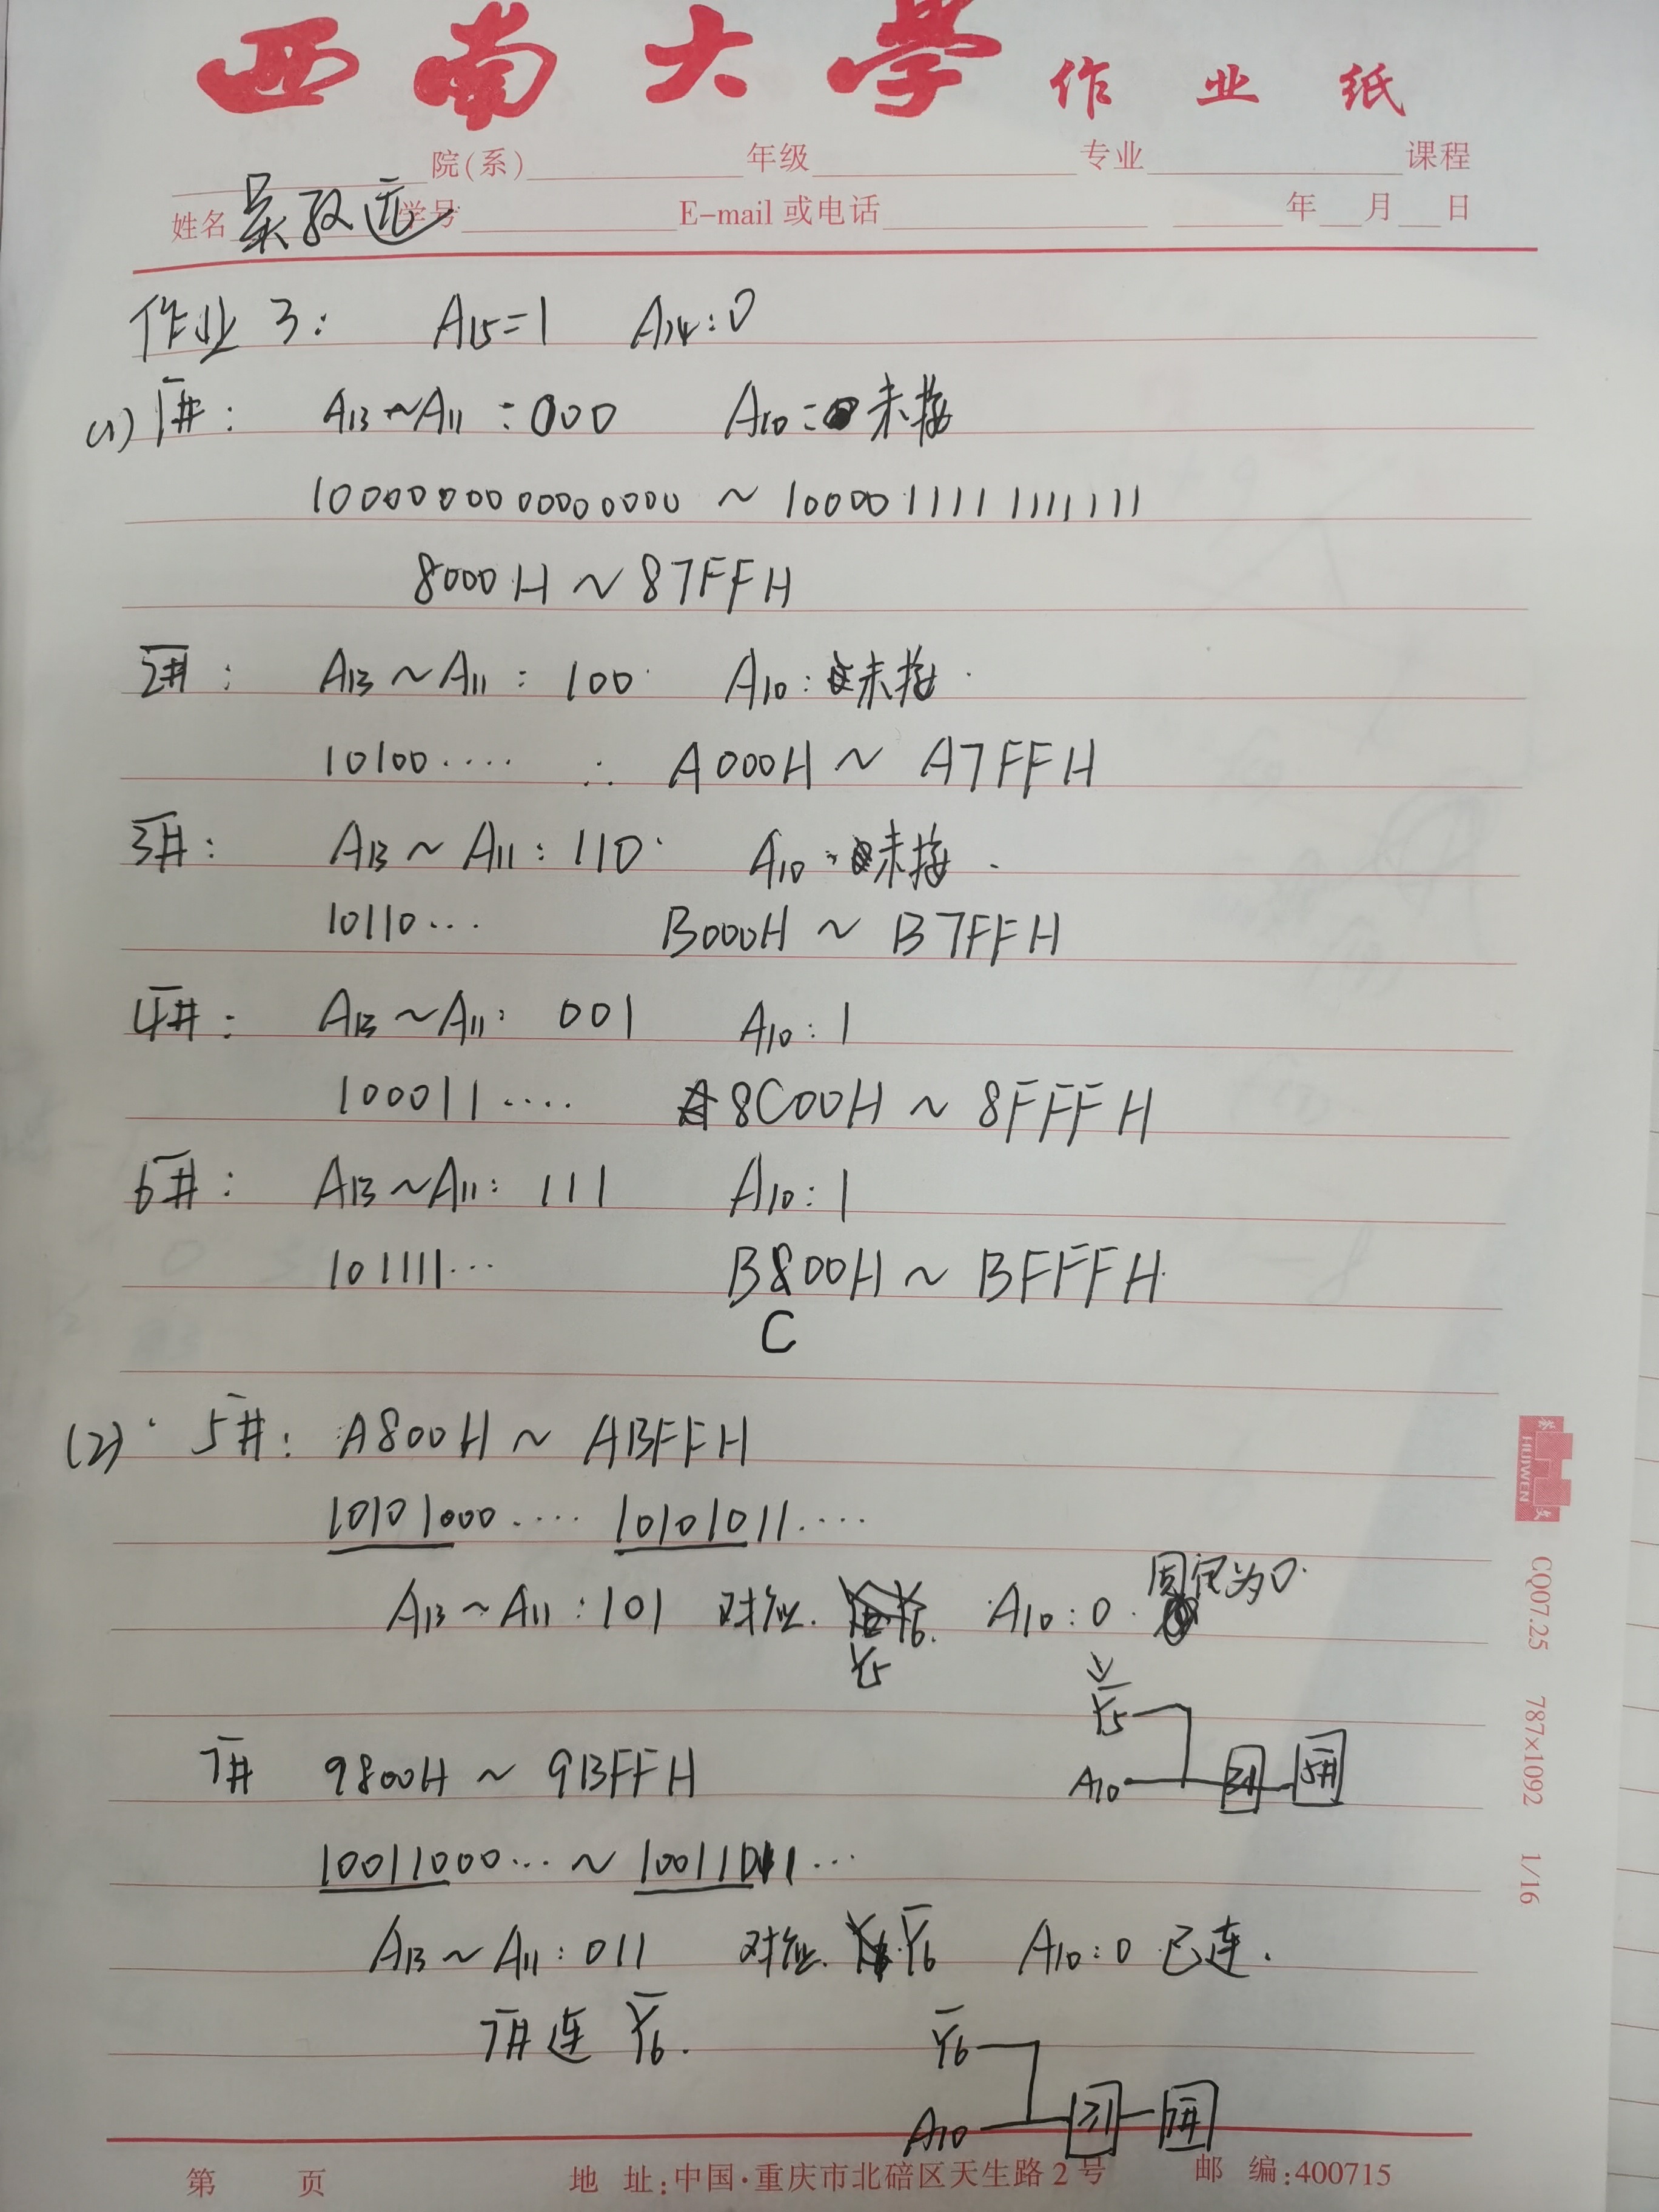 西南大学 作业纸
院(系) 年级 专业 课程
姓名 吴致远 学号 E-mail 或电话 年 月 日
作业 3: A15=1 A14:0
(1) 1#: A13~A11:000 A10: 未接
1000000000000000 ~ 1000011111111111
8000H ~ 87FFH
2#: A13~A11: 100 A10: 未接
10100···· ∴ A000H ~ A7FFH
3#: A13~A11: 110 A10: 未接
10110··· B000H ~ B7FFH
4#: A13~A11: 001 A10: 1
100011···· 8C00H ~ 8FFFH
6#: A13~A11: 111 A10: 1
101111··· B800H ~ BFFFH
C
(2) 5#: A800H ~ ABFFH
10101000···· 10101011····
A13~A11: 101 对应 A10: 0 固定为0
Y5
Y5
A10 ≥1 5#
7# 9800H ~ 9BFFH
10011000··· ~ 10011011···
A13~A11: 011 对应 Y̅6 A10: 0 已连.
7#连 Y̅6.
Y̅6
A10 ≥1 7#
第 页 地 址:中国·重庆市北碚区天生路2号 邮 编:400715
HUIWEN
CQ07.25 787×1092 1/16